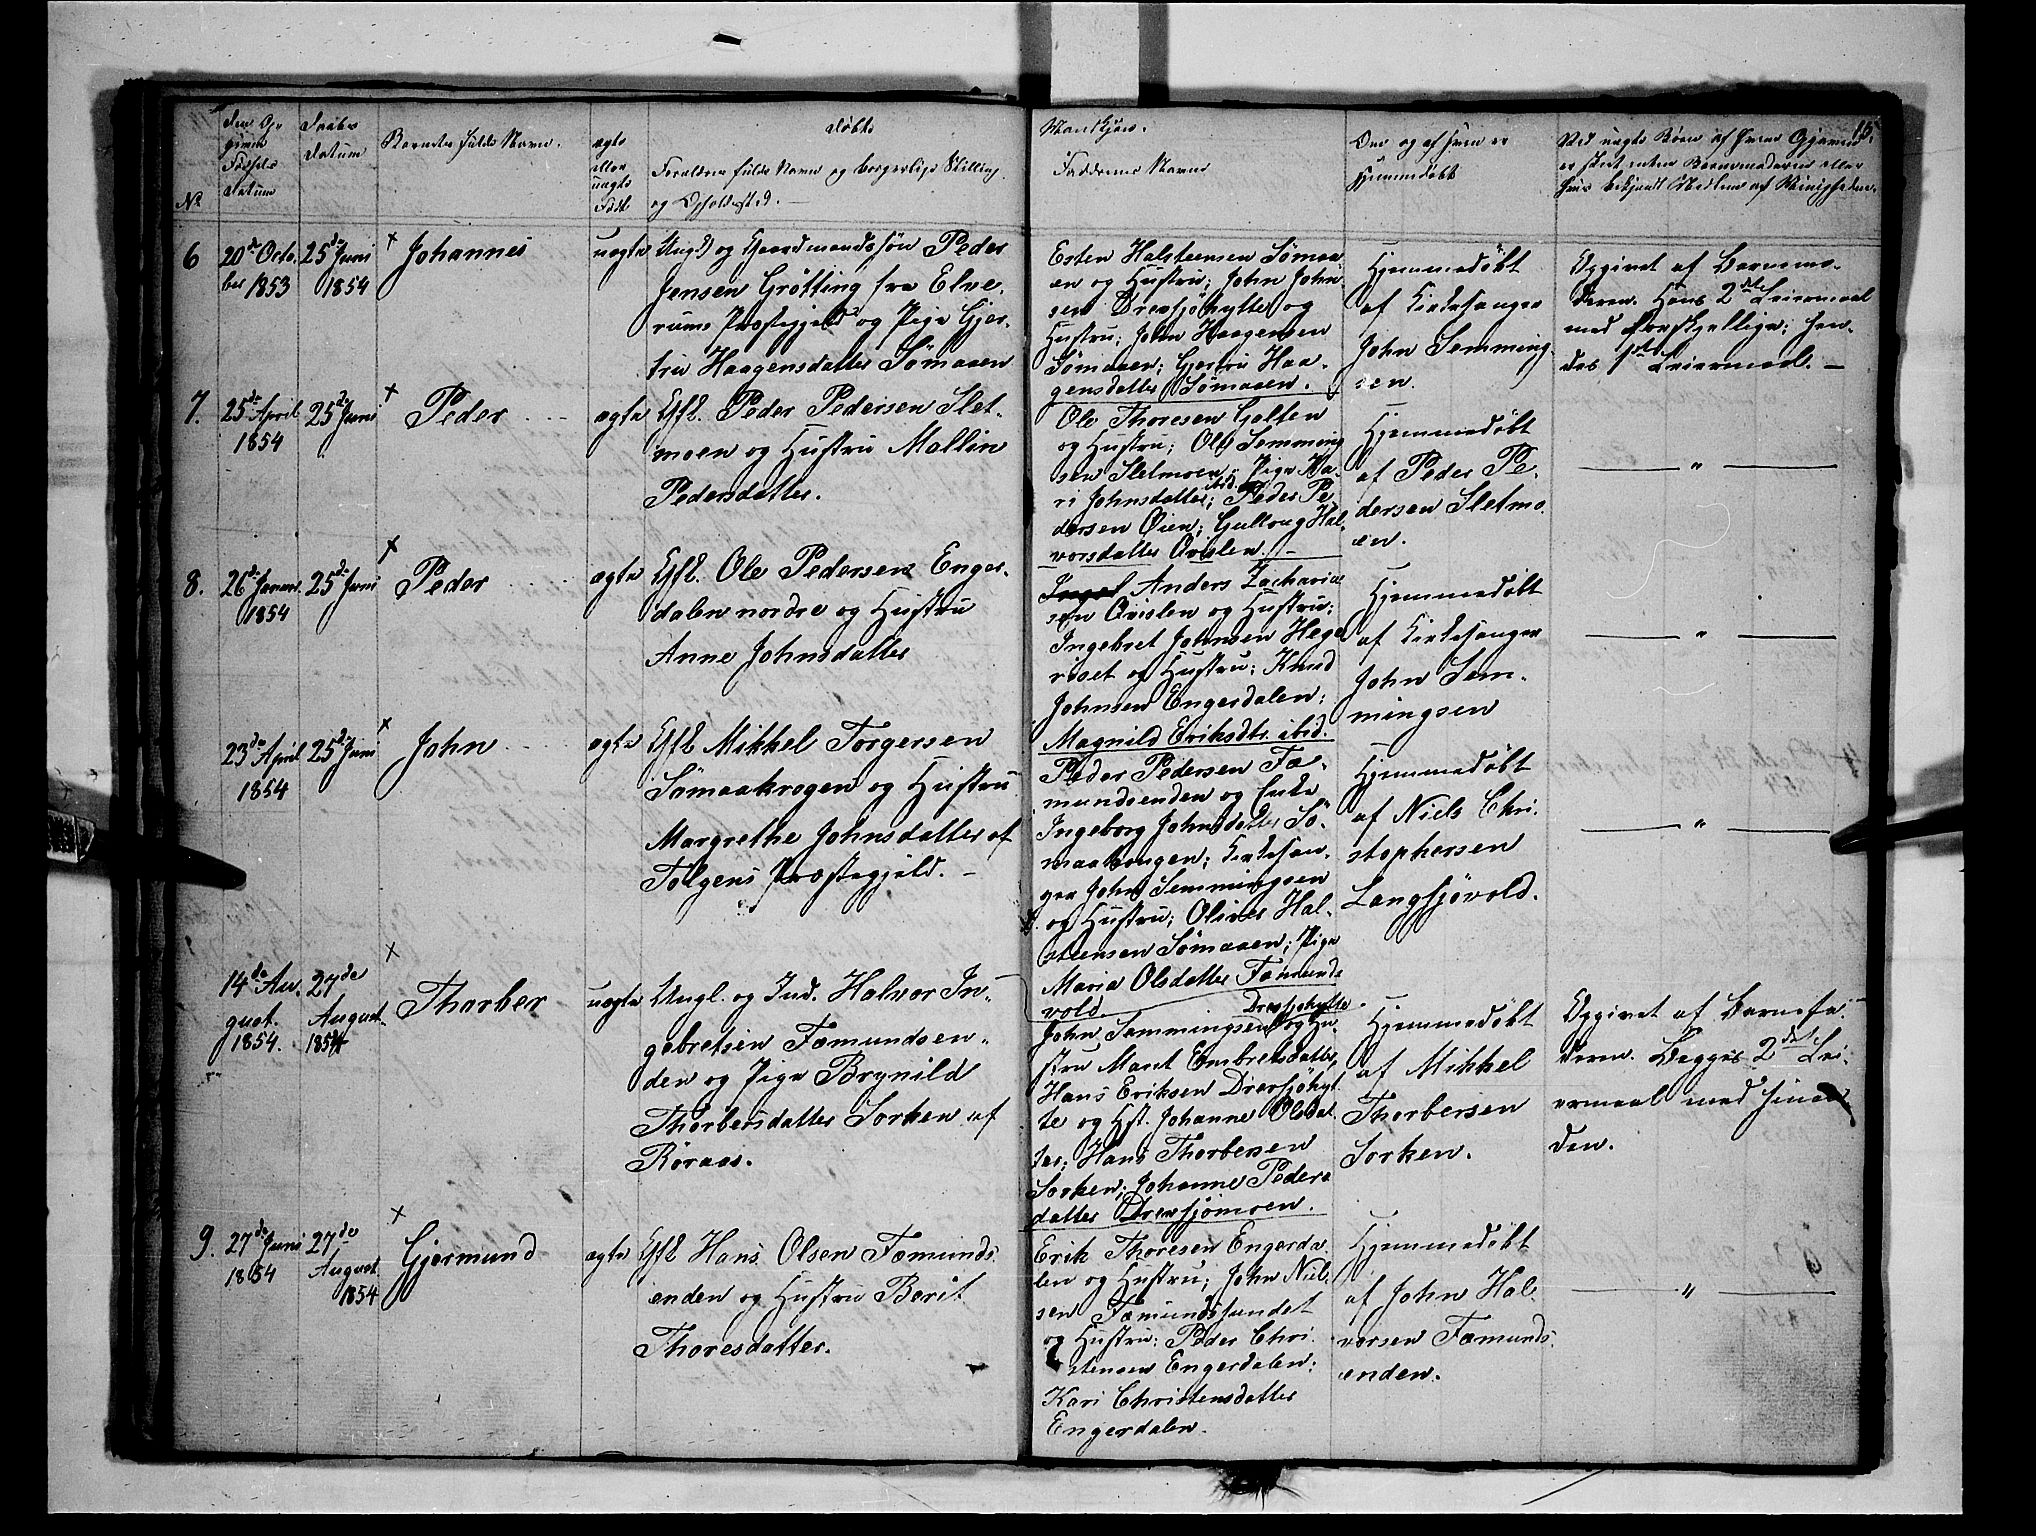 15.
Døbte
Mandkjøn.
No
Den Op-
givne
Fødsels
Datum
Daabs
Datum
Barnets fulde Navn.
ægte
eller
uægte
Født
Forældrenes fulde Navn og borgerlige Stilling
og Opholdssted. —
Faddernes Navne
Om og af hvem er
hjemmedøbt
Ved uægte Børn af hvem Opgivend
er skeet enten Barnemoderen eller
hvis bekjendt Medlem af Menigheden.
6
20de Octo.
ber 1853
25de Juni
1854
Johannes
uægte
Ungk. og Gaardmandssøn Peder
Jensen Grötting fra Elve.
rums Præstegjeld og Pige Gjer-
tru Haagensdatter Sömaaen
Esten Halsteensen Sömaa
en og Hustru; John John
sen Drevsjöhytte og
Hustru; John Haagensen
Sömaaen; Gjertru Haa-
gensdatter Sömaaen.
Hjemmedöbt
af Kirkesanger
John Semming
sen.
Opgivet af Barnemo-
deren. Hans 2det Leiermaal
med forskjellige; hen-
des 1ste Leiermaal. —
7.
25de April
1854
25de Juni
Peder
ægte
Gfl. Peder Pedersen Slet-
moen og Hustru Mallin
Pedersdatter.
Ole Thoresen Galten
og Hustru; Ole Semming
sen Sletmoen; Pige Ka-
ri Johnsdatter ibid.; Peder Pe
dersen Øien; Gullaug Hal-
vorsdatter Qvislen. —
Hjemmedöbt
af Peder Pe-
dersen Sletmo.
en.
— " —
8.
26de Januar
1854
25de Juni
Peder
ægte
Gfl. Ole Pedersen Enger-
dalen nordre og Hustru
Anne Johnsdatter
Anders Zacharia
sen Qvislen og Hustru;
Ingebret Johnsen Hege
riset og Hustru; Knud
Johnsen Engerdalen;
Magnild Eriksdtr. ibid.
Hjemmedöbt
af Kirkesanger
John Sem-
mingsen
— " —
23de April
1854
25de Juni
John
ægte
Gfl Mikkel Torgersen
Sömaakrogen og Hustru
Margrethe Johnsdatter af
Tolgens Præstegjeld. —
Peder Pedersen Fæ-
mundsenden og Enke
Ingeborg Johnsdatter Sö-
maakrogen; Kirkesan-
ger John Semmingsen
og Hustru; Oliver Hal-
steensen Sömaaen; Pige
Maria Olsdatter Fæmunds
vold
Hjemmedöbt
af Niels Chri-
stophersen
Langsjövold.
— " —
14de Au.
gust.
1854.
27de
August
1854
Thorber
uægte
Ungk. og Ind. Halvor In-
gebretsen Fæmundsen-
den og Pige Brynild
Thorbersdatter Sorken af
Röraas.
John Semmingsen Drevsjöhytte og Hu-
stru Maret Embretsdatter,
Hans Eriksen Drevsjöhyt
te og Hst. Johanne Olsdat
ter; Hans Thorbersen
Sorken; Johanne Peders
datter Drevsjömoen.
Hjemmedöbt
af Mikkel
Thorbersen
Sorken.
Opgivet af Barnefa-
deren. Begges 2det Lei-
ermaal med hinan
den.
9.
27de Juni
1854
27de
August
1854
Gjermund
ægte
Gfl Hans Olsen Fæmunds.
enden og Hustru Berit
Thoresdatter.
Erik Thoresen Engerda.
len og Hustru; John Niel-
sen Fæmundssundet
og Hustru; Peder Chri
stensen Engerdalen;
Kari Christensdatter
Engerdalen.
Hjemmedöbt
af John Hal-
vorsen Fæmunds.
enden.
— " —